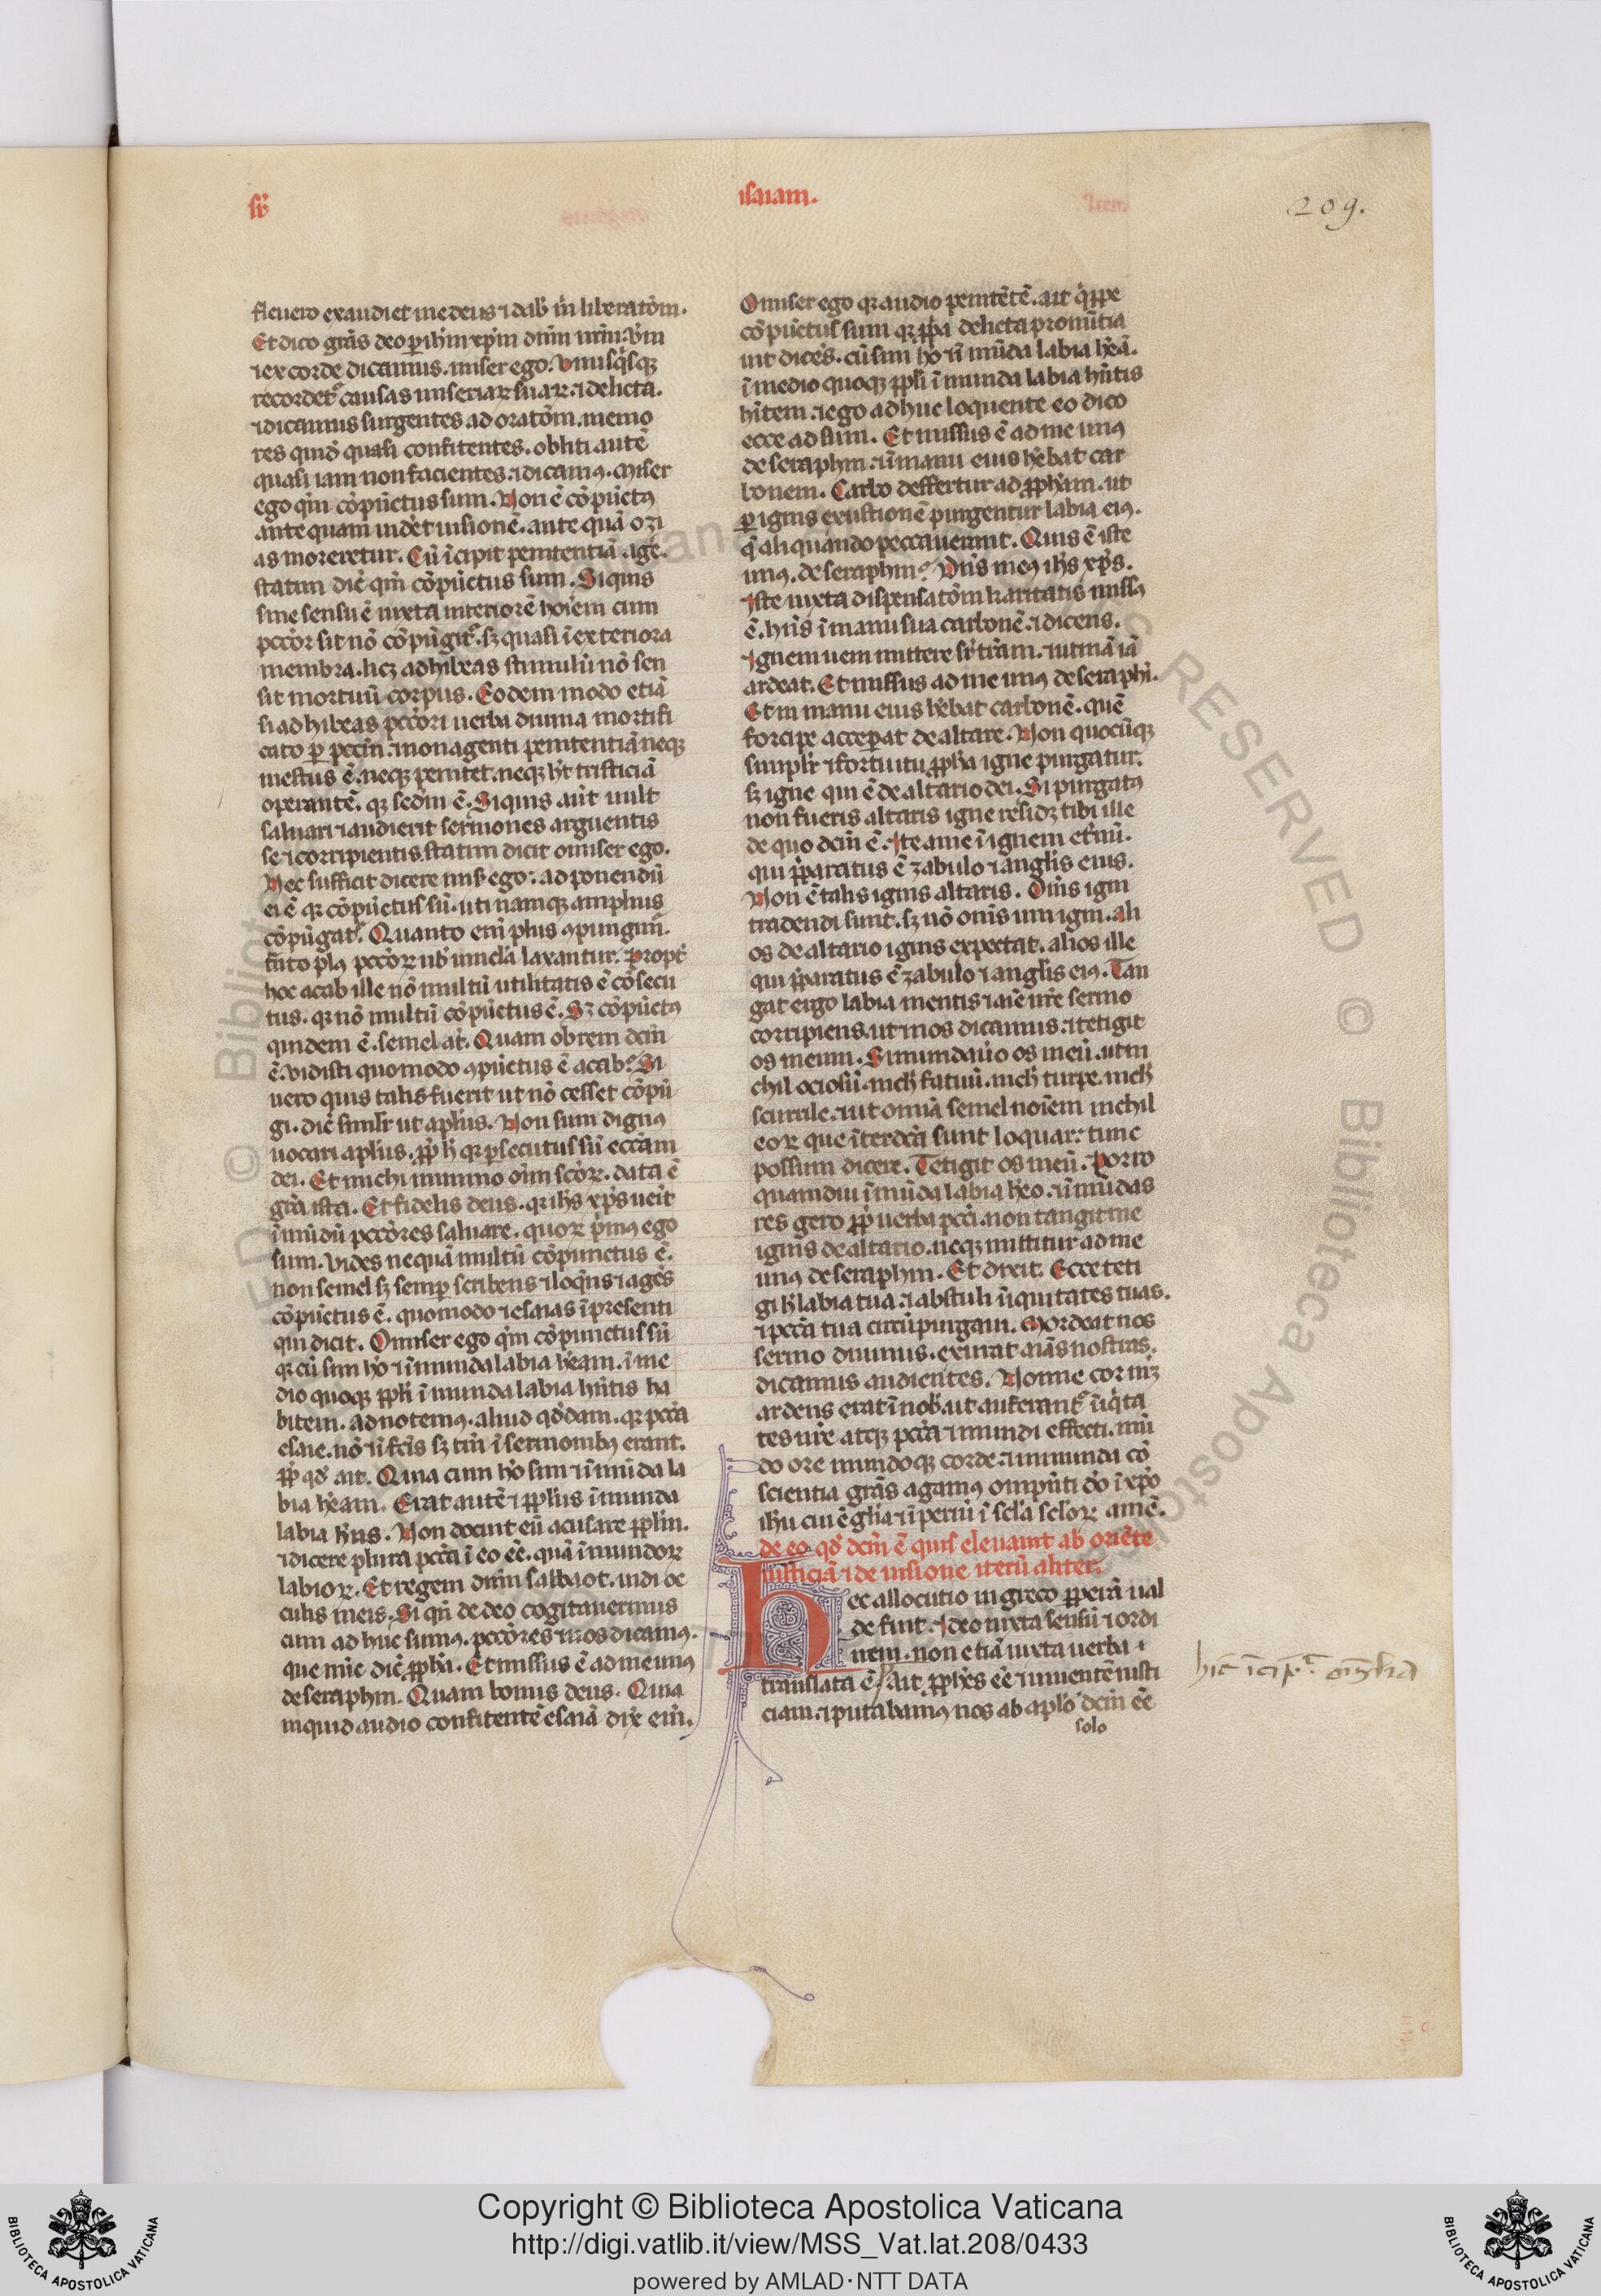 sr̄
isaiam.
209.
fleuero exaudiet me deus ⁊ dab' m̄ liberatōm.
Et dico grās deo ꝑ ihm̄ xpm̄ dn̄m nr̄m. v̄m
⁊ ex corde dicamus. miser ego. Vnusq̄sqꝫ
recordet᷑ causas miseriaꝝ suaꝝ. ⁊ delicta.
⁊ dicamus surgentes ad oratōm. memo
res quid' quasi confitentes. obliti autē
quasi iam non facientes. ⁊ dicamꝰ. Miser
ego qm̄ cōpūctus sum. Non ē cōpūctꝰ
ante quam uidet uisionē. ante quā ozi
as moreretur. Cū īcipit penitentiā agē.
statim dic̄ qm̄ cōpūctus sum. Siquis
sine sensu ē iuxta interiorē hoīem cum
pccōr sit nō cōpūgit᷑. sꝫ quasi ī exteriora
membra. licꝫ adhibeas stimulū nō sen
sit mortuū corpus. Eodem modo etiā
si adhibeas pccōri uerba diuina mortifi
cato ꝑ pccm̄. ⁊ non agenti penitentiā neqꝫ
mestus ē. neqꝫ penitet. neqꝫ ht' tristiciā
operantē. qꝫ sedm̄ ē. Siquis aut uult
saluari ⁊ audierit sermones arguentis
se ⁊ corripientis. statim dicit o miser ego.
Nec sufficit dicere mis' ego. ad ponendū
ei ē qꝛ cōpūctus sū. uti namqꝫ amplius
cōpūgat᷑. Quanto em̄ plus ꝯpungim᷑.
tāto plꝰ pccōꝝ nb' uincla laxantur. Propt'
hoc acab ille nō multū utilitatis ē cōsecu
tus. qꝛ nō multū cōpūctus ē. Sꝫ cōpūctꝰ
quidem ē. semel at'. Quam obrem dcm̄
ē. vidisti quomodo ꝯpūctus ē acab? Si
uero quis talis fuerit ut nō cesset cōpū
gi. dic̄ simil'r ut apl'us. Non sum dignꝰ
uocari apl'us. ꝓp h' qꝛ ꝑsecutus sū eccām
dei. Et michi minimo oīm scōꝝ. data ē
grā ista. Et fidelis deus. qꝛ ihs xp̄s ueīt
ī mūdū pccōres saluare. quoꝝ p̄mꝰ ego
sum. vides nequā multū cōpunctus ē.
non semel sꝫ semꝑ scribens ⁊ loq̄ns ⁊ agēs
cōpūctus ē. quomodo ⁊ esaias ī presenti
qui dicit. O miser ego qm̄ cōpunctus sū
qꝛ cū sim hō ⁊ īmunda labia hēam. ī me
dio quoqꝫ ppl'i īmunda labia hn̄tis ha
bitem. adnotemꝰ. aliud qd'dam. qꝛ pccā
esaie. nō ⁊ ī fcīs sꝫ tm̄ ī sermonibꝰ erant.
ꝓp qd' ait. Quia cum hō sim ⁊ ī mūda la
bia hēam. Erat autē ⁊ ppl'us īmunda
labia hn̄s. Non docuit eū acusare ppl'm.
⁊ dicere plura pccā ī eo eē. quā īmundoꝝ
labioꝝ. Et regem dn̄m sabaot. uidi oc
culis meis. Si qn̄ de deo cogitauerimus
cum ad huc sumꝰ. pccōres ⁊ nos dicamꝰ.
que nūc dic̄ ppha. Et missus ē ad me unꝰ
de seraphin. Quam bonus deus. Quia
inquid audio confitentē esaiā dix' em̄.
O miser ego qꝛ audio penitētē. ait q̄ppe
cōpūctus sum qꝛ ppā delicta pronūtia
uit dicēs. cū sim hō ⁊ ī mūda labia hēā.
ī medio quoqꝫ ppl'i īmunda labia hn̄tis
hītem. ⁊ ego adhuc loquente eo dico
ecce ad sum. Et missus ē ad me unꝰ
de seraphin. ⁊ ī manu eius hēbat car
bonem. Carbo deffertur ad ppham. ut
ꝑ ignis exustionē purgentur labia eiꝰ.
q̄ aliquando peccauerunt. Quis ē iste
unꝰ. de seraphin? Dn̄s meꝰ ihs xp̄s.
Iste iuxta dispensatōm karitatis missꝰ
ē. hn̄s ī manu sua carbonē. ⁊ dicens.
Ignem ueni mittere sr̄ trām. ⁊ utinā iā
ardeat. Et missus ad me unꝰ de seraphi.
Et in manu eius hēbat carbonē. quē
forcipe acceꝑat de altare. Non quocūqꝫ
simpl'r ⁊ fortuitu ppha igne purgatur.
sꝫ igne qui ē de altario dei. Si purgatꝰ
non fueris altaris igne residꝫ tibi ille
de quo dcm̄ ē. Ite a me ī ignem et'nū.
qui p̄paratus ē zabulo ⁊ angl'is eius.
Non ē talis ignis altaris. Oms igni
tradendi sunt. sꝫ nō oms uni igni. ali
os de altario ignis expectat. alios ille
qui p̄paratus ē zabulo ⁊ angl'is eiꝰ. Tan
gat ergo labia mentis ⁊ aīe nr̄e sermo
corripiens. ut nos dicamus. ⁊ tetigit
os meum. Si mundauō os meū. ut ni
chil ociosū. nich' fatuū. nich' turpe. nich'
scurrile. ⁊ ut omīa semel noīem nichil
eoꝝ que īterdcā sunt loquar: tunc
possum dicere. Tetigit os meū. Porro
quamdiu ī mūda labia hēo. ⁊ ī mūdas
res gero ꝓp uerba pccī. non tangit me
ignis de altario. neqꝫ mittitur ad me
unꝰ de seraphin. Et dixit. Ecce teti
gi h' labia tua. ⁊ abstuli īiquitates tuas.
⁊ pccā tua circūpurgaui. Mordeat nos
sermo diuinus. exurat aīas nostras.
dicamus audientes. Nonne cor nr̄ꝫ
ardens erat ī nob'. ut auferant᷑ īiq̄ta
tes nr̄e atqꝫ pccā ⁊ mundi effecti. mū
do ore mundoqꝫ corde. ⁊ munda cō
scientia grās agamꝰ omp̄nti dō ī xpō
ihu cui ē gl'ia ⁊ īperiū ī scl'a scl'oꝝ amē.
de eo qd' dcm̄ ē quis eleuauit ab oriēte
iusticiā ⁊ de uisione iterū aliter.
Hec allocutio in greco ꝓperā ual
de fuit. Ideo iuxta sensū ⁊ ordi
nem. non etiā iuxta uerba ⁊
translata ē. Ait pphes eē ⁊ inuentē iusti
ciam. ⁊ putabamꝰ nos ab apl'o dcm̄ eē
solo
hic īcip᷑t om̄elia